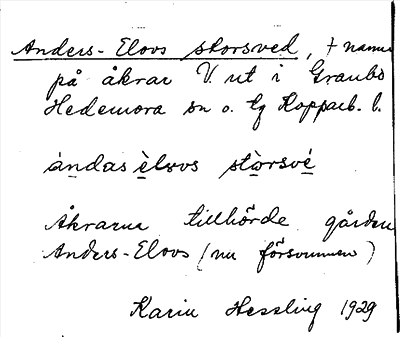 Anders-Elovs storsved, † namn
på åkrar V. ut i Graubo
Hedemora sn o. tg Kopparb. l.
ándas èlovs stòrsvé
Åkrarna tillhörde gården
Anders-Elovs (nu försvunnen)
Karin Hessling 1929